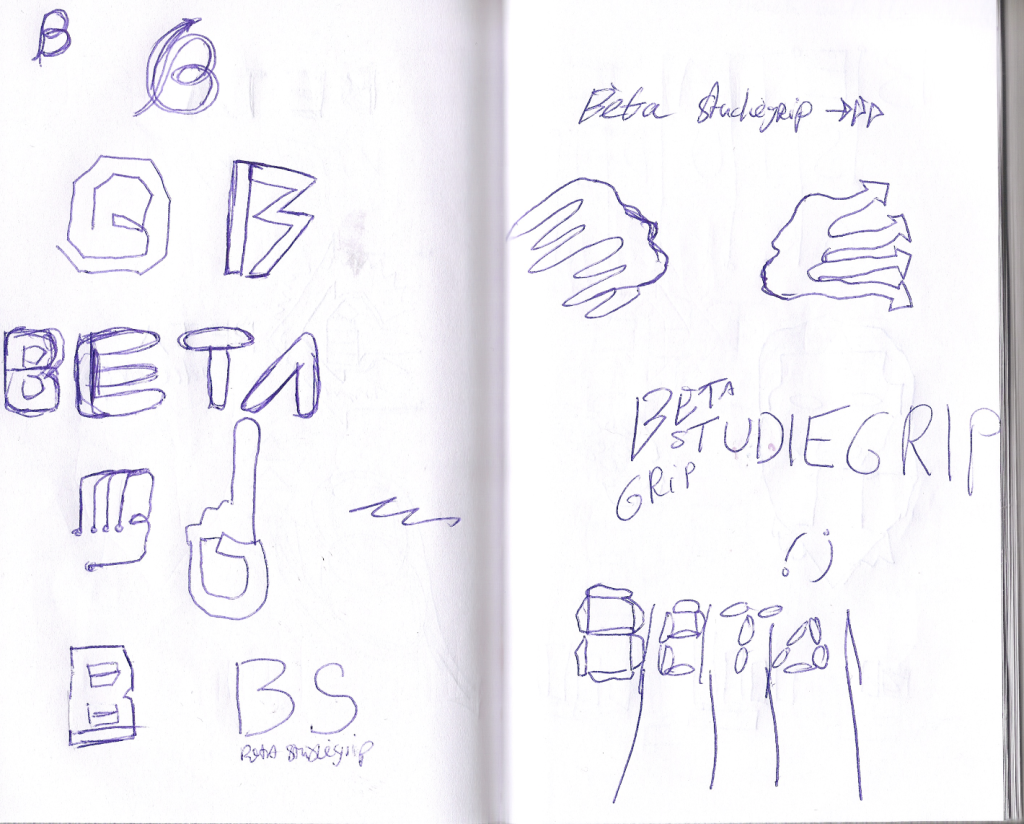 B
B
B
B
BETA
B
BS
Beta Studiegrip
Beta Studiegrip
BETA
STUDIEGRIP
GRiP
BETA